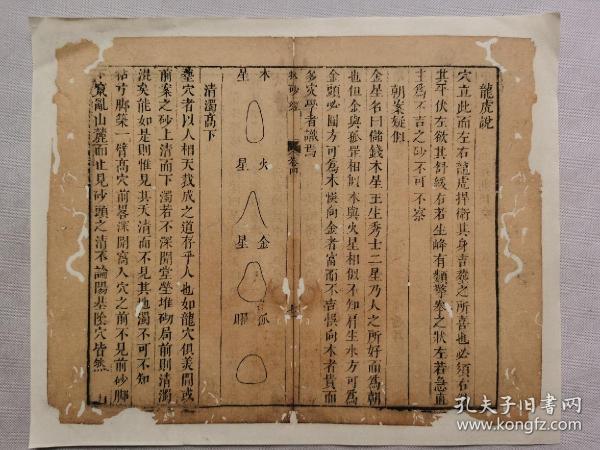 龍虎說
穴立此而左右龍虎捍衛其身吉葬之所喜也必須右
其平伏左欲其舒緩右若坐峰有類擎拳之狀左若急直
主為不吉之砂不可不察
朝案疑似
金星名曰儲錢木星王生秀士二星乃人之所好而為朝
也但金與孤罡相似木與火星相似不知肩生水方可為
金頭必圓方可為木悞向金者富而不吉悞向木者貴而
多災學者識焉
卷四
木星
火星
金星
孤曜
清濁高下
塟穴者以人相天裁成之道存乎人也如龍穴俱美間或
前案之砂上清而下濁若不深開堂塋堆砌局前則清濁
混矣能如是則惟見其天清而不見其地濁不可不知
脚築一臂高穴前畧深開窩人穴之前不見前砂脚
亂山麓而止見砂頭之清不論陽基陰穴皆然
孔夫子旧書网
www.kongfz.com